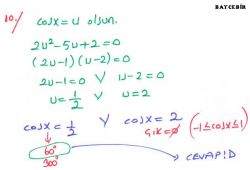 BAYCEBİR
10.) cosx = u olsun.
2u² - 5u + 2 = 0
(2u - 1)(u - 2) = 0
2u - 1 = 0 V u - 2 = 0
u = 1/2 V u = 2
cosx = 1/2 V cosx = 2
G.K = ∅ (-1 ≤ cosx ≤ 1)
60°
300°
CEVAP: D